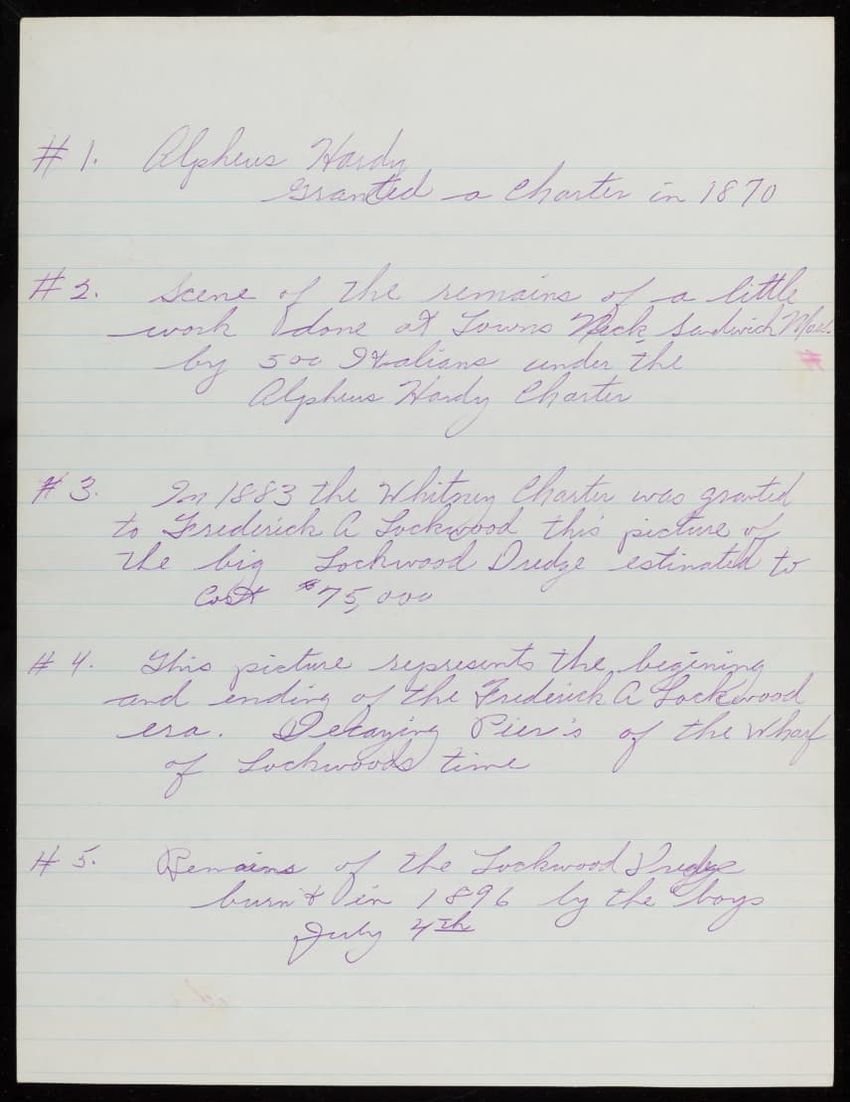 # 1. Alpheus Hardy
Granted a Charter in 1870
# 2. Scene of the remains of a little
work done at Towns Neck, Sandwich Mass.
by 500 Italians under the
Alpheus Hardy Charter
# 3. In 1883 the Whitney Charter was granted
to Frederick A Lockwood this picture of
the big Lockwood Dredge estimated to
Cost $75,000
# 4. This picture represents the begining
and ending of the Frederick A Lockwood
era. Decaying Pier's of the Wharf
of Lockwoods time
# 5. Remains of the Lockwood Dredge
burn't in 1896 by the boys
July 4th